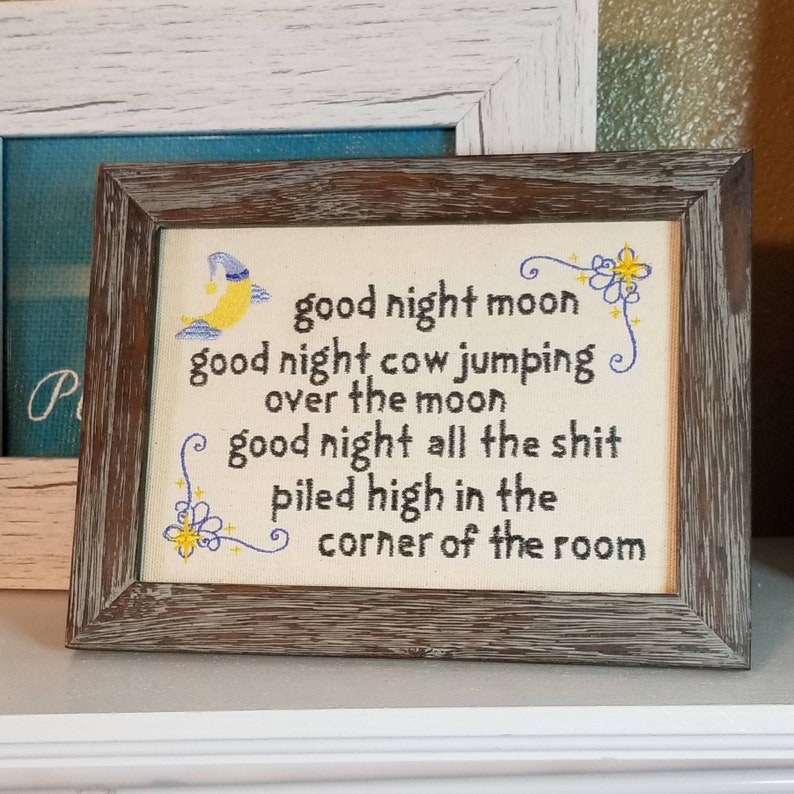 good night moon
good night cow jumping
over the moon
good night all the shit
piled high in the
corner of the room